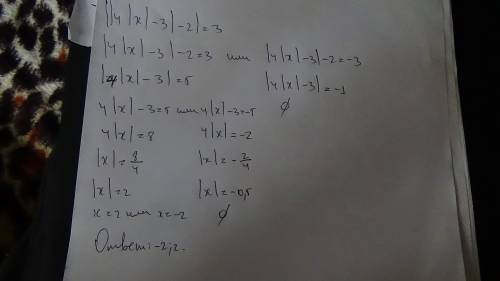 ||4|x|-3|-2|=3
|4|x|-3|-2=3 или |4|x|-3|-2=-3
|4|x|-3|=5 |4|x|-3|=-1
4|x|-3=5 или 4|x|-3=-5 ∅
4|x|=8 4|x|=-2
|x|=8/4 |x|=-2/4
|x|=2 |x|=-0,5
x=2 или x=-2 ∅
Ответ: -2; 2.